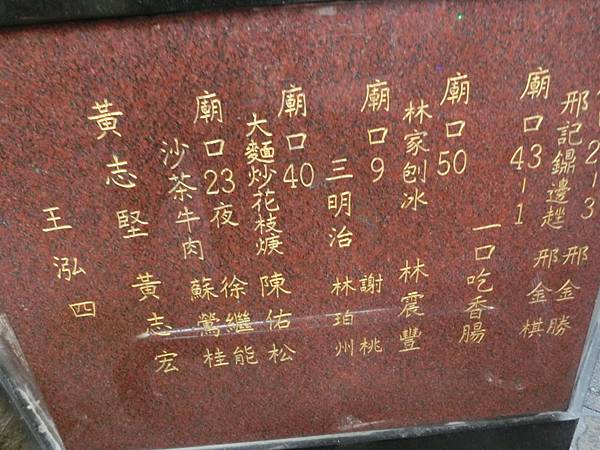 2-3
邢記鼎邊趖 邢金勝
邢金棋
廟口43-1
一口吃香腸
廟口50
林家刨冰 林震豐
廟口9 謝桃
三明治 林珀州
廟口40
大麵炒花枝焿 陳佑松
廟口23夜 徐繼能
沙茶牛肉 蘇鶯桂
黃志堅 黃志宏
王泓四